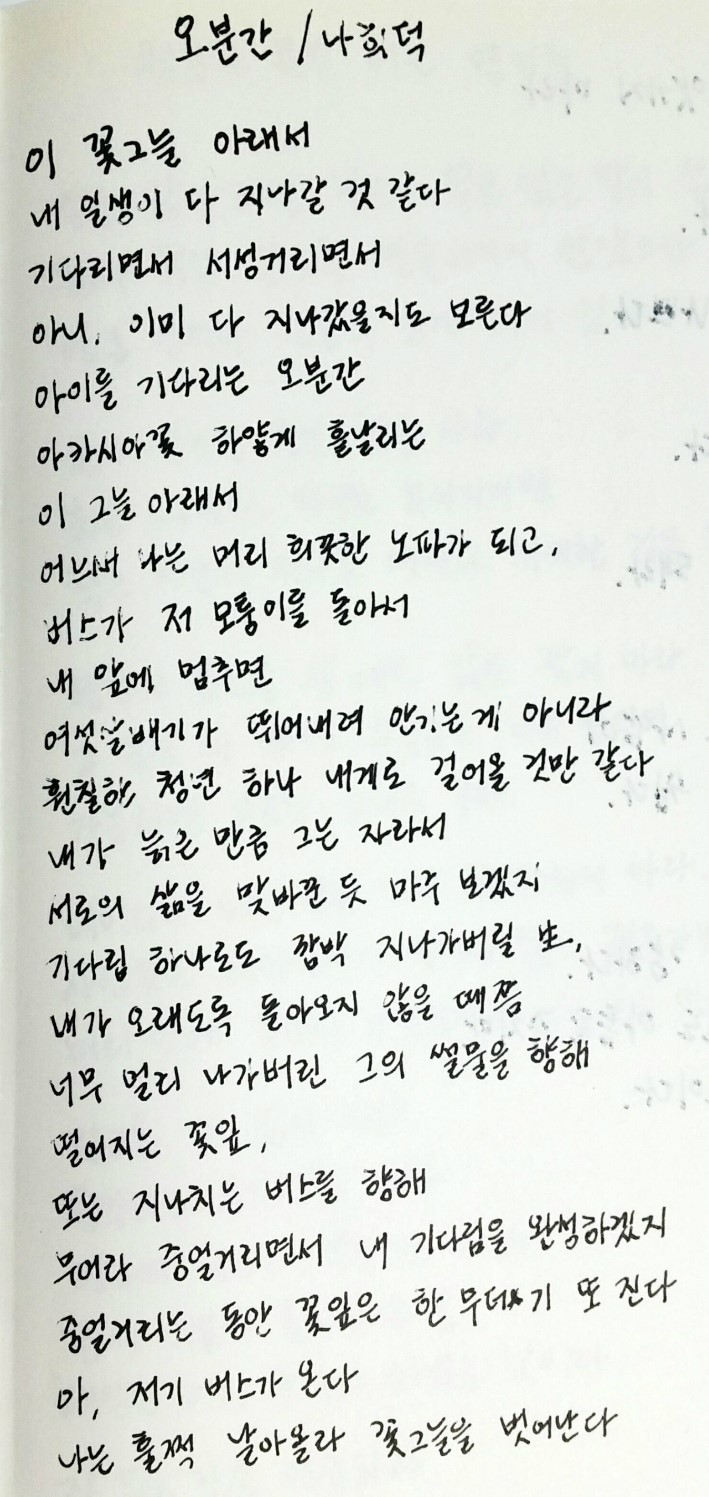 오분간 / 나희덕
이 꽃그늘 아래서
내 일생이 다 지나갈 것 같다
기다리면서 서성거리면서
아니, 이미 다 지나갔을지도 모른다
아이를 기다리는 오분간
아카시아꽃 하얗게 흩날리는
이 그늘 아래서
어느새 나는 머리 희끗한 노파가 되고,
버스가 저 모퉁이를 돌아서
내 앞에 멈추면
여섯살배기가 뛰어내려 안기는게 아니라
훤칠한 청년 하나 내게로 걸어올 것만 같다
내가 늙은 만큼 그는 자라서
서로의 삶을 맞바꾼 듯 마주 보겠지
기다림 하나로도 깜박 지나가버릴 生,
내가 오래도록 돌아오지 않을 때쯤
너무 멀리 나가버린 그의 썰물을 향해
떨어지는 꽃잎,
또는 지나치는 버스를 향해
무어라 중얼거리면서 내 기다림을 완성하겠지
중얼거리는 동안 꽃잎은 한 무더기 또 진다
아, 저기 버스가 온다
나는 훌쩍 날아올라 꽃그늘을 벗어난다